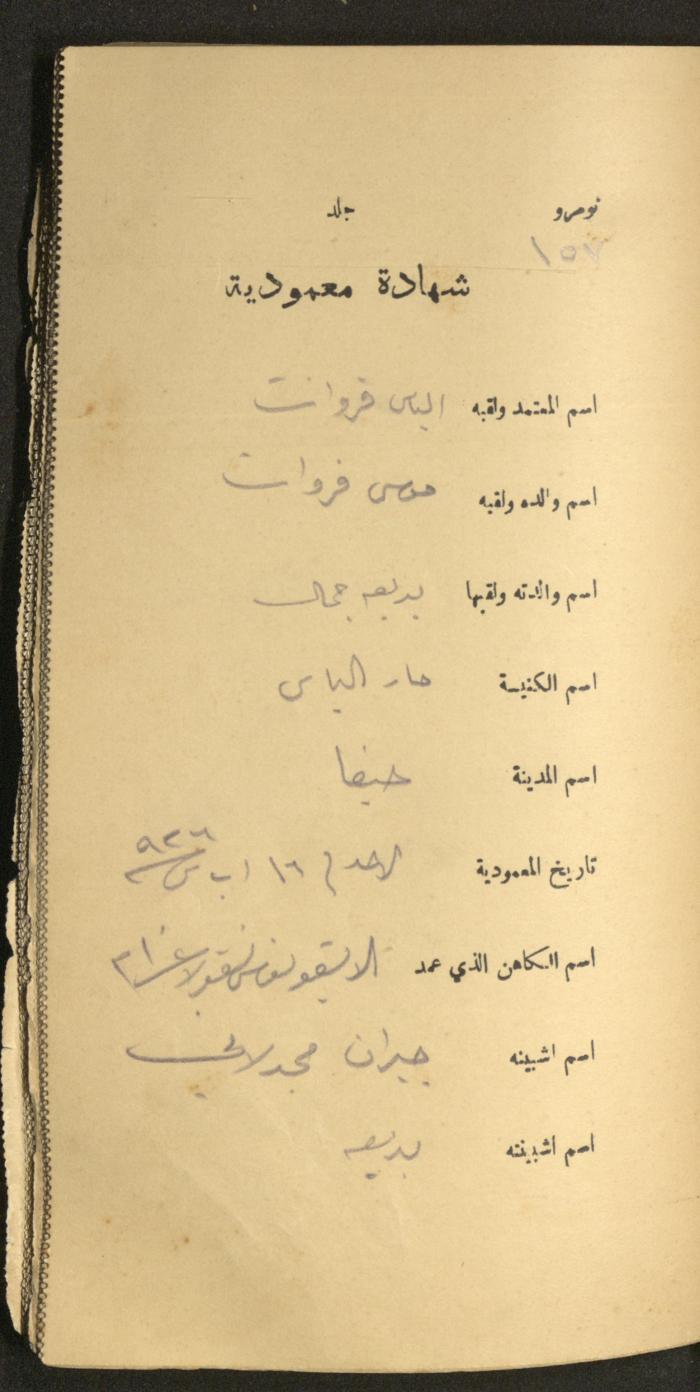 نومرو جلد
١٥٧
شهادة معمودية
اسم المعتمد ولقبه الياس فروات
اسم والده ولقبه موسى فروات
اسم والدته ولقبها بديعه جمال
اسم الكنيسة مار الياس
اسم المدينة حيفا
تاريخ المعمودية الاحد ١٦ اب ٩٢٦
اسم الكاهن الذي عمد الايقونوموس نقولا
اسم اشبينه جبران مجدلاني
اسم اشبينته بديعه